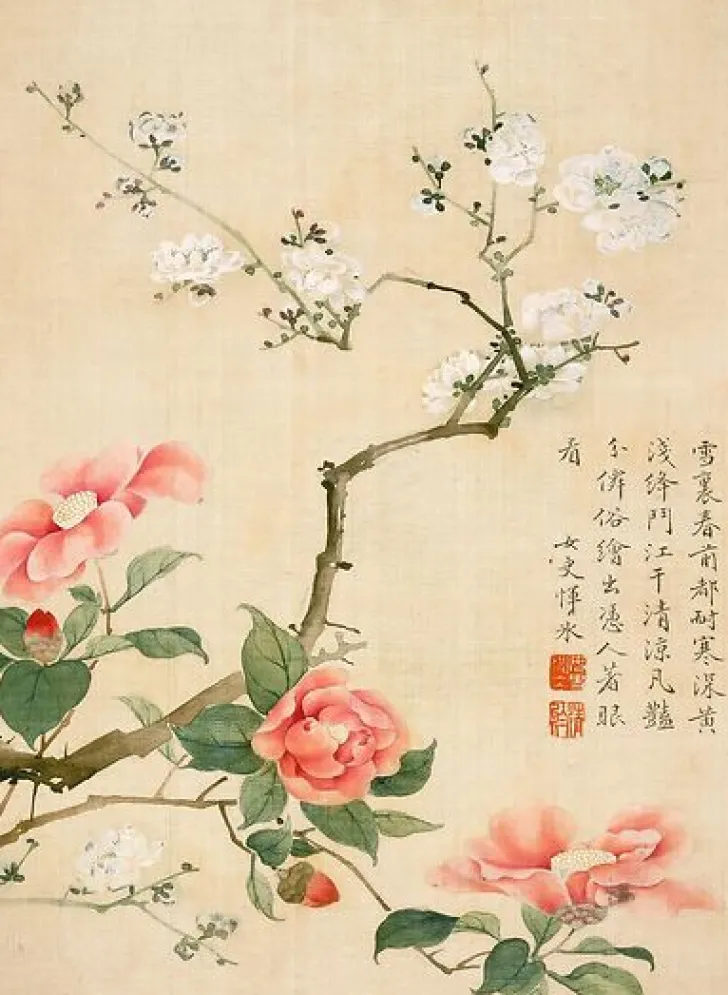 雪裏春前都耐寒深黄
淺絳鬥江干清涼凡豔
俗繪出憑人着眼
看
女史惲冰